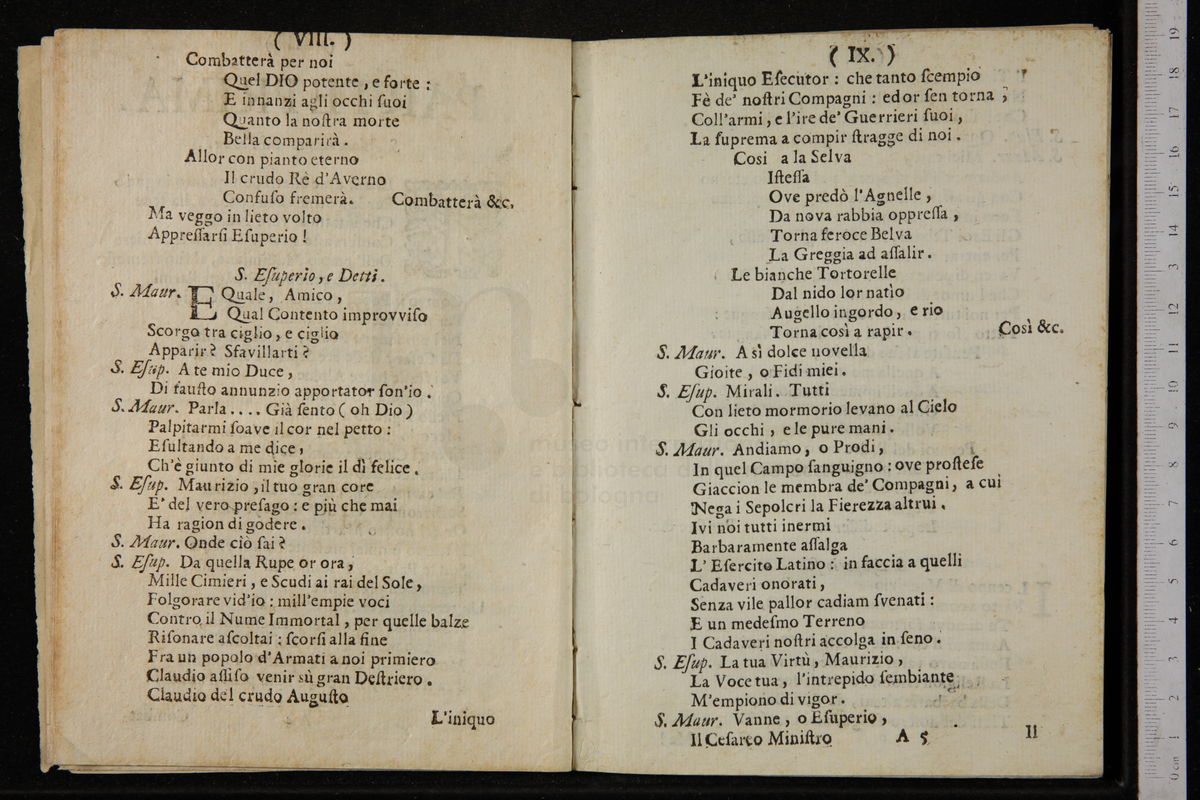 ( VIII. )
Combatterà per noi
Quel DIO potente , e forte :
E innanzi agli occhi ſuoi
Quanto la noſtra morte
Bella comparirà .
Allor con pianto eterno
Il crudo Rè d'Averno
Confuſo fremerà. Combatterà &c.
Ma veggo in lieto volto
Appreſſarſi Eſuperio !
S. Eſuperio, e Detti.
S. Maur. E Quale, Amico,
Qual Contento improvviſo
Scorgo tra ciglio, e ciglio
Apparir? Sfavillarti ?
S. Eſup. A te mio Duce ,
Di fauſto annunzio apportator ſon'io .
S. Maur. Parla .... Già ſento ( oh Dio )
Palpitarmi ſoave il cor nel petto :
Eſultando a me dice ,
Ch'è giunto di mie glorie il dì felice .
S. Eſup. Maurizio , il tuo gran core
E' del vero preſago : e più che mai
Ha ragion di godere .
S. Maur. Onde ciò ſai ?
S. Eſup. Da quella Rupe or ora ,
Mille Cimieri , e Scudi ai rai del Sole,
Folgorare vid'io : mill'empie voci
Contro il Nume Immortal , per quelle balze
Riſonare aſcoltai : ſcorſi alla fine
Fra un popolo d'Armati a noi primiero
Claudio aſſiſo venir sù gran Deſtriero .
Claudio del crudo Auguſto
L'iniquo
( IX. )
L'iniquo Eſecutor : che tanto ſcempio
Fè de' noſtri Compagni : ed or ſen torna ,
Coll'armi , e l'ire de' Guerrieri ſuoi ,
La ſuprema a compir ſtragge di noi .
Cosi a la Selva
Iſteſſa
Ove predò l'Agnelle ,
Da nova rabbia oppreſſa ,
Torna feroce Belva
La Greggia ad aſſalir .
Le bianche Tortorelle
Dal nido lor natìo
Augello ingordo , e rio
Torna così a rapir . Così &c.
S. Maur. A sì dolce novella
Gioite , o Fidi miei .
S. Eſup. Mirali . Tutti
Con lieto mormorio levano al Cielo
Gli occhi , e le pure mani .
S. Maur. Andiamo , o Prodi ,
In quel Campo ſanguigno : ove proſteſe
Giaccion le membra de' Compagni , a cui
Nega i Sepolcri la Fierezza altrui .
Ivi noi tutti inermi
Barbaramente aſſalga
L' Eſercito Latino : in faccia a quelli
Cadaveri onorati ,
Senza vile pallor cadiam ſvenati :
E un medeſmo Terreno
I Cadaveri noſtri accolga in ſeno .
S. Eſup. La tua Virtù , Maurizio ,
La Voce tua , l'intrepido ſembiante
M'empiono di vigor .
S. Maur. Vanne , o Eſuperio ,
Il Ceſareo Miniſtro A 5 Il